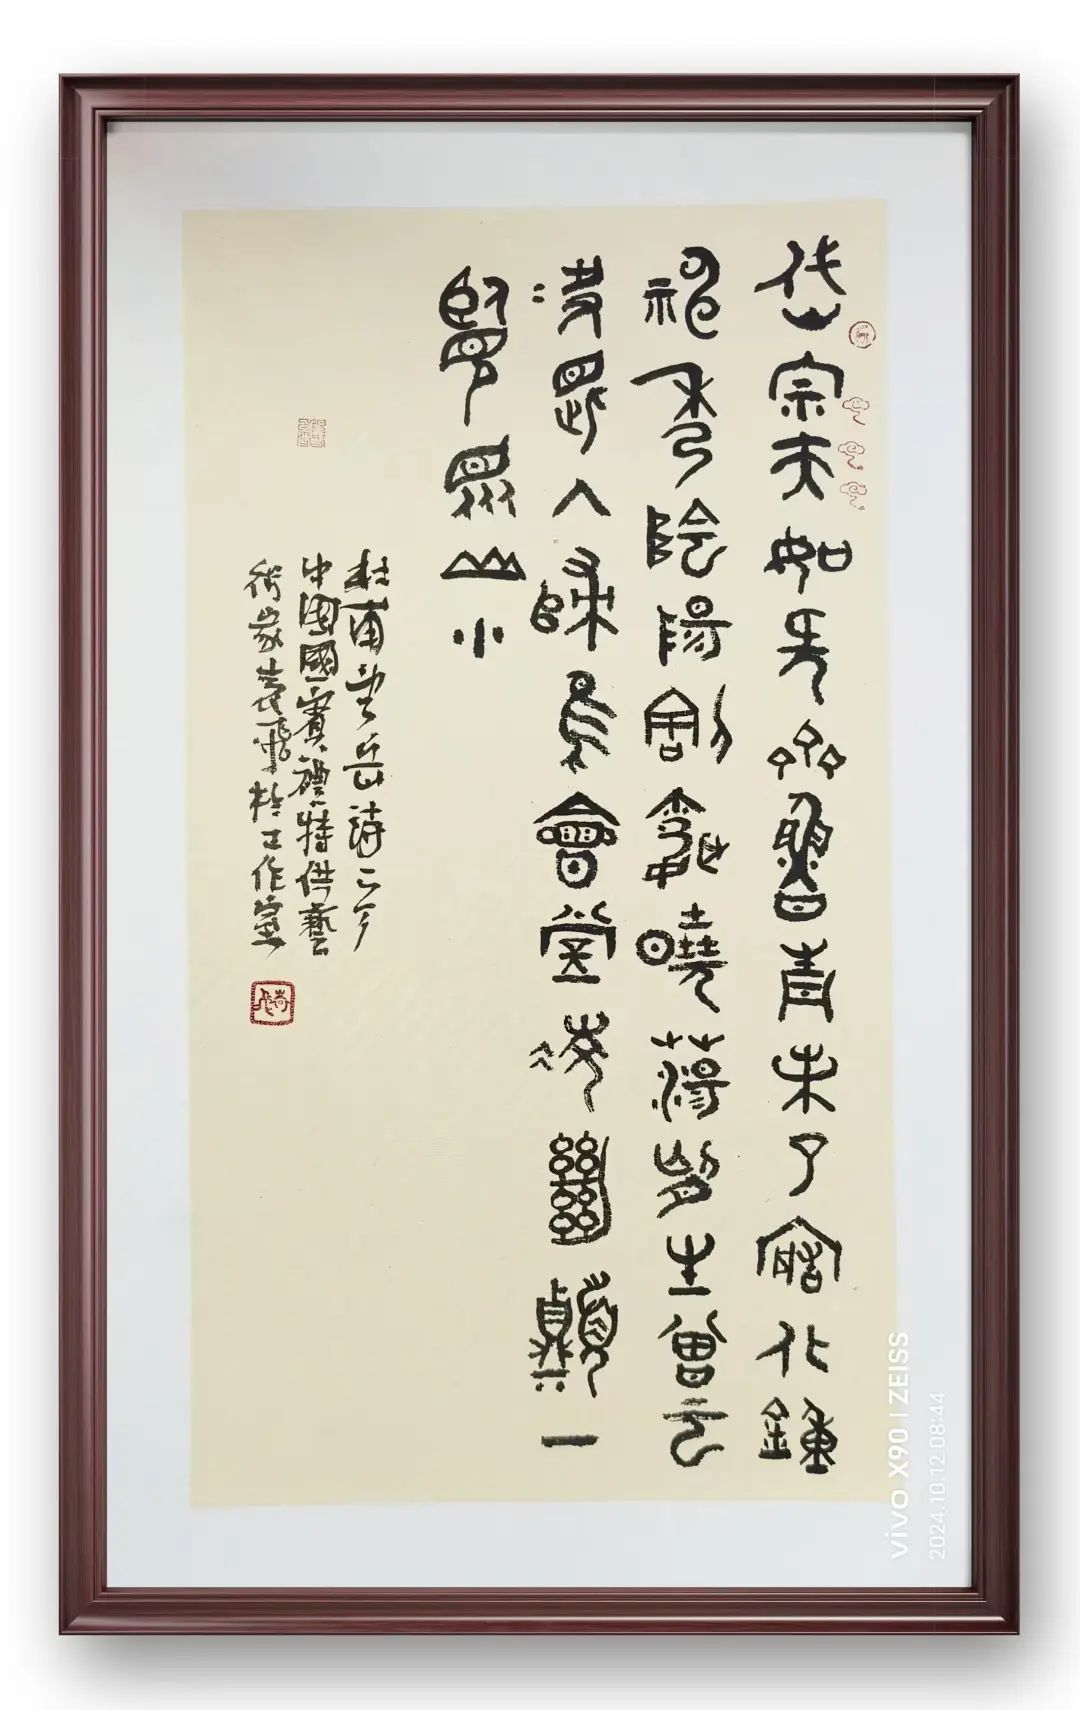 岱宗夫如何齊魯青未了造化鍾
神秀陰陽割昏曉蕩胸生曾云
決眥入歸鳥會當凌絕頂一
覽眾山小
杜甫望岳詩
中国國賓禮特供藝
術家袁飛於工作室
vivo X90 | ZEISS
2024.10.12 08:44